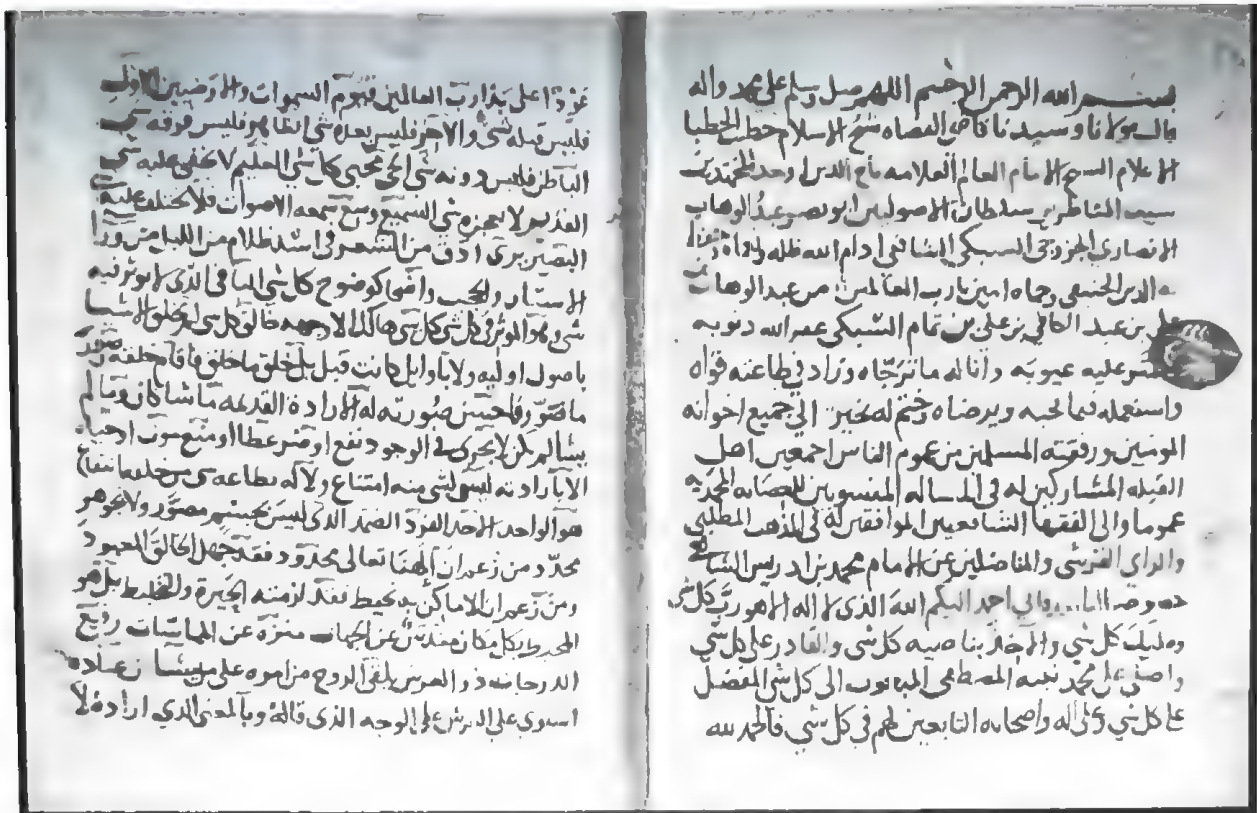 بسم الله الرحمن الرحيم اللهم صل وسلم على محمد واله
قال مولانا وسيدنا قاضي القضاه شيخ الاسلام خطيب الخطبا
الاعلام الشيخ الامام العالم العلامه تاج الدين اوحد المجتهدين
سيف المناظرين سلطان الاصوليين ابو نصر عبد الوهاب
الانصاري الخزرجي السبكي الشافعي ادام الله ظله
الدين الحنيفي وحماه امين يارب العالمين من عبد الوهاب
علي بن عبد الكافي بن علي بن تمام السبكي غفر الله ذنوبه
وستر عليه عيوبه واناله ما ترجاه وزاد في طاعته قواه
واستعمله فيما يحبه ويرضاه وختم له بخير الي جميع اخوانه
المومنين ورفقته المسلمين من عموم الناس اجمعين اهل
القبله المشاركين له في المساله المنسوبين للعصابه المحمديه
عموما والى الفقها الشافعيين الموافقين له في المذهب المطلبي
والراي القرشي والمناضلين عن الامام محمد بن ادريس الشافعي
احمد اليكم الله الذي لا اله الا هو رب كل شي
ومليك كل شي والاخذ بناصيه كل شي والقادر على كل شي
واصلي على محمد نبيه المصطفى المبعوث الى كل شي المفضل
على كل شي وعلى اله واصحابه التابعين لهم في كل شي فالحمد لله
عودا على بدا رب العالمين قيوم السموات والارضين الاول
فليس قبله شي والاخر فليس بعده شي الظاهر فليس فوقه شي
الباطن فليس دونه شي الحي محيي كل شي العليم لا يخفى عليه شي
القدير لا يعجزه شي السميع وسع سمعه الاصوات فلا تختلف عليه
البصير يرى ادق من الشعر في اشد ظلام من الليل من ورا
الاستار والحجب واضحا كوضوح كل شي الباقي الذي لا يوثر فيه
شي وهو الموثر في كل شي كل شي هالك الا وجهه خالق كل شي لم يخلق الاشيا
باصول اوليه ولا باوايل كانت قبل بل خلق ما خلق فاقام خلقه وصور
ما صور فاحسن صورته له الارادة القديمه ما شا كان وما لم
يشا لم يكن لا يجري في الوجود نفع او ضر عطا او منع موت او حياه
الا بارادته ليس لشي منه امتناع ولا له بطاعه شي من خلقه انتفاع
هو الواحد الاحد الفرد الصمد الذي ليس بجسم مصور ولا جوهر
محدد من زعم ان الهنا تعالى محدود فقد جهل الخالق المعبود
ومن زعم ان الاماكن به تحيط فقد لزمته الحيرة والتخليط بل هو
المحيط بكل مكان مقدس عن الجهات منزه عن المماسات رفيع
الدرجات ذو العرش يلقي الروح من امره على من يشا من عباده
استوى على العرش على الوجه الذي قاله وبالمعنى الذي اراده لا